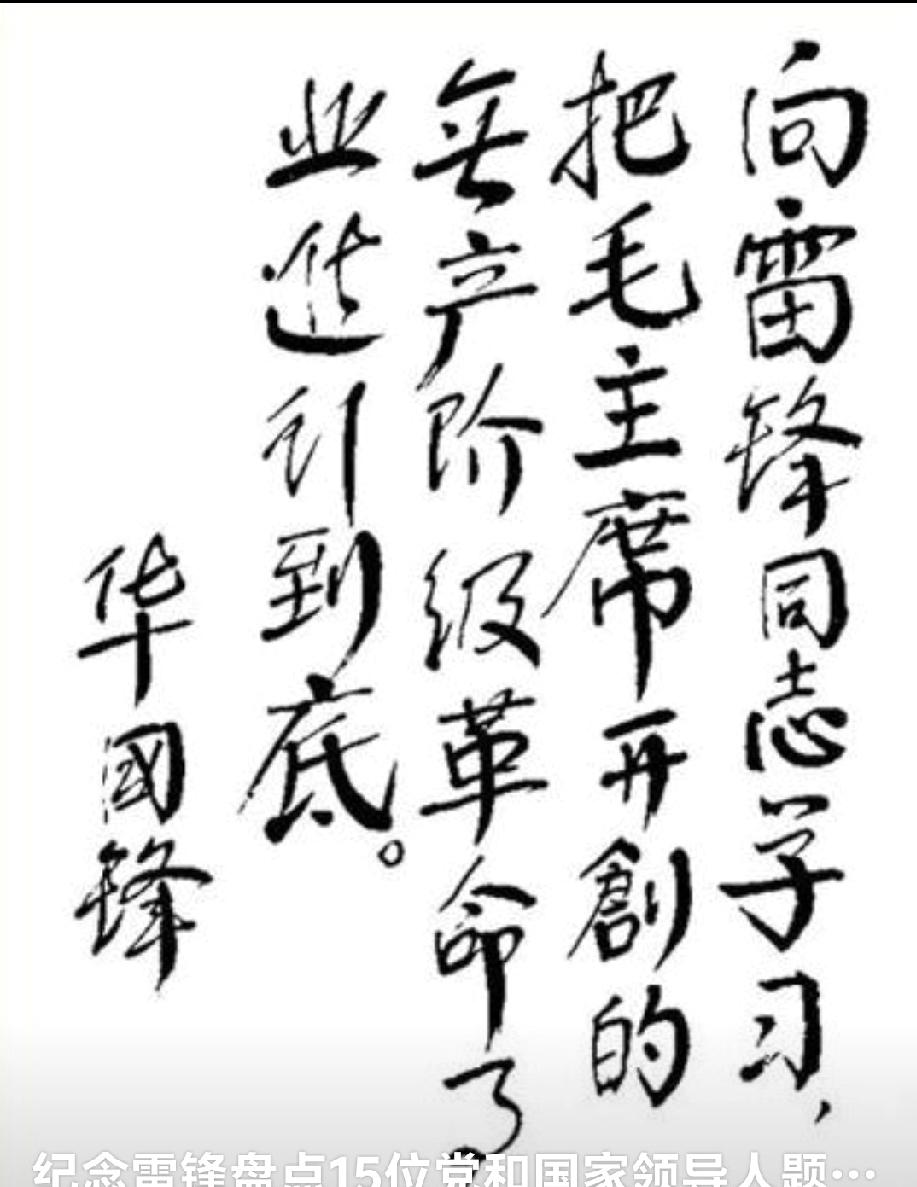 向雷锋同志学习，
把毛主席开創的
無产阶级革命事
业進行到底。
华國锋
纪念雷锋盘点15位党和国家领导人题…